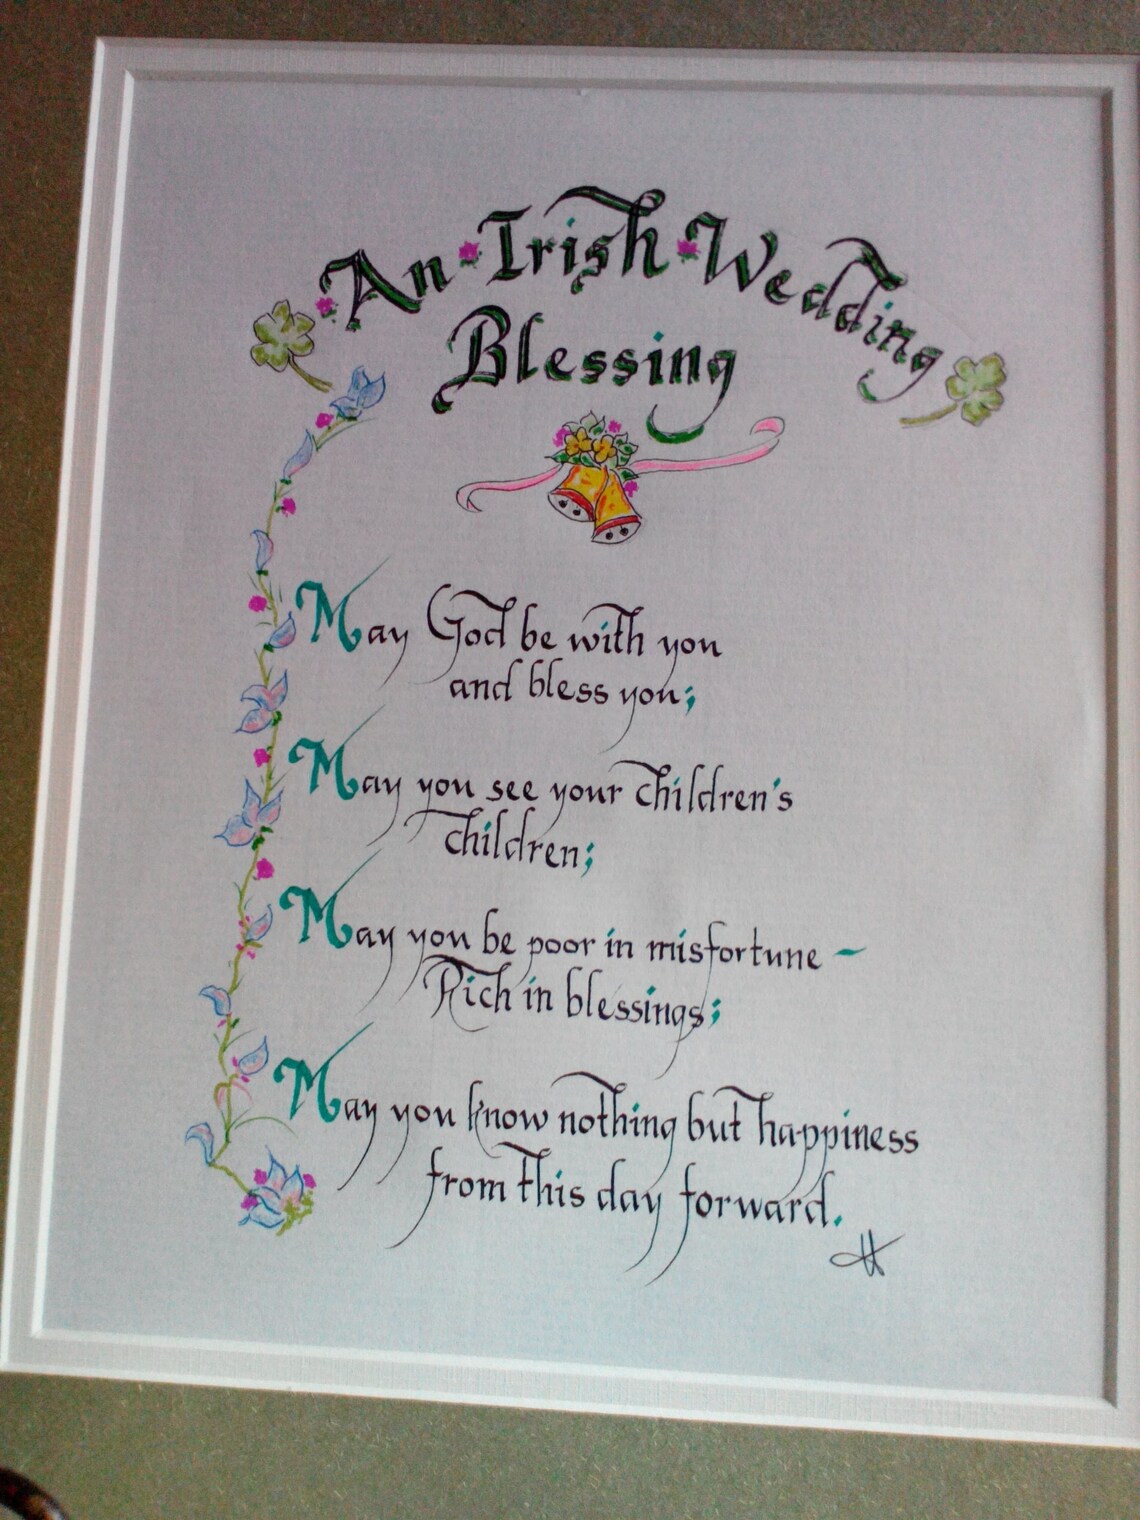 An Irish Wedding
Blessing
May God be with you
and bless you;
May you see your children's
children;
May you be poor in misfortune -
Rich in blessings;
May you know nothing but happiness
from this day forward.